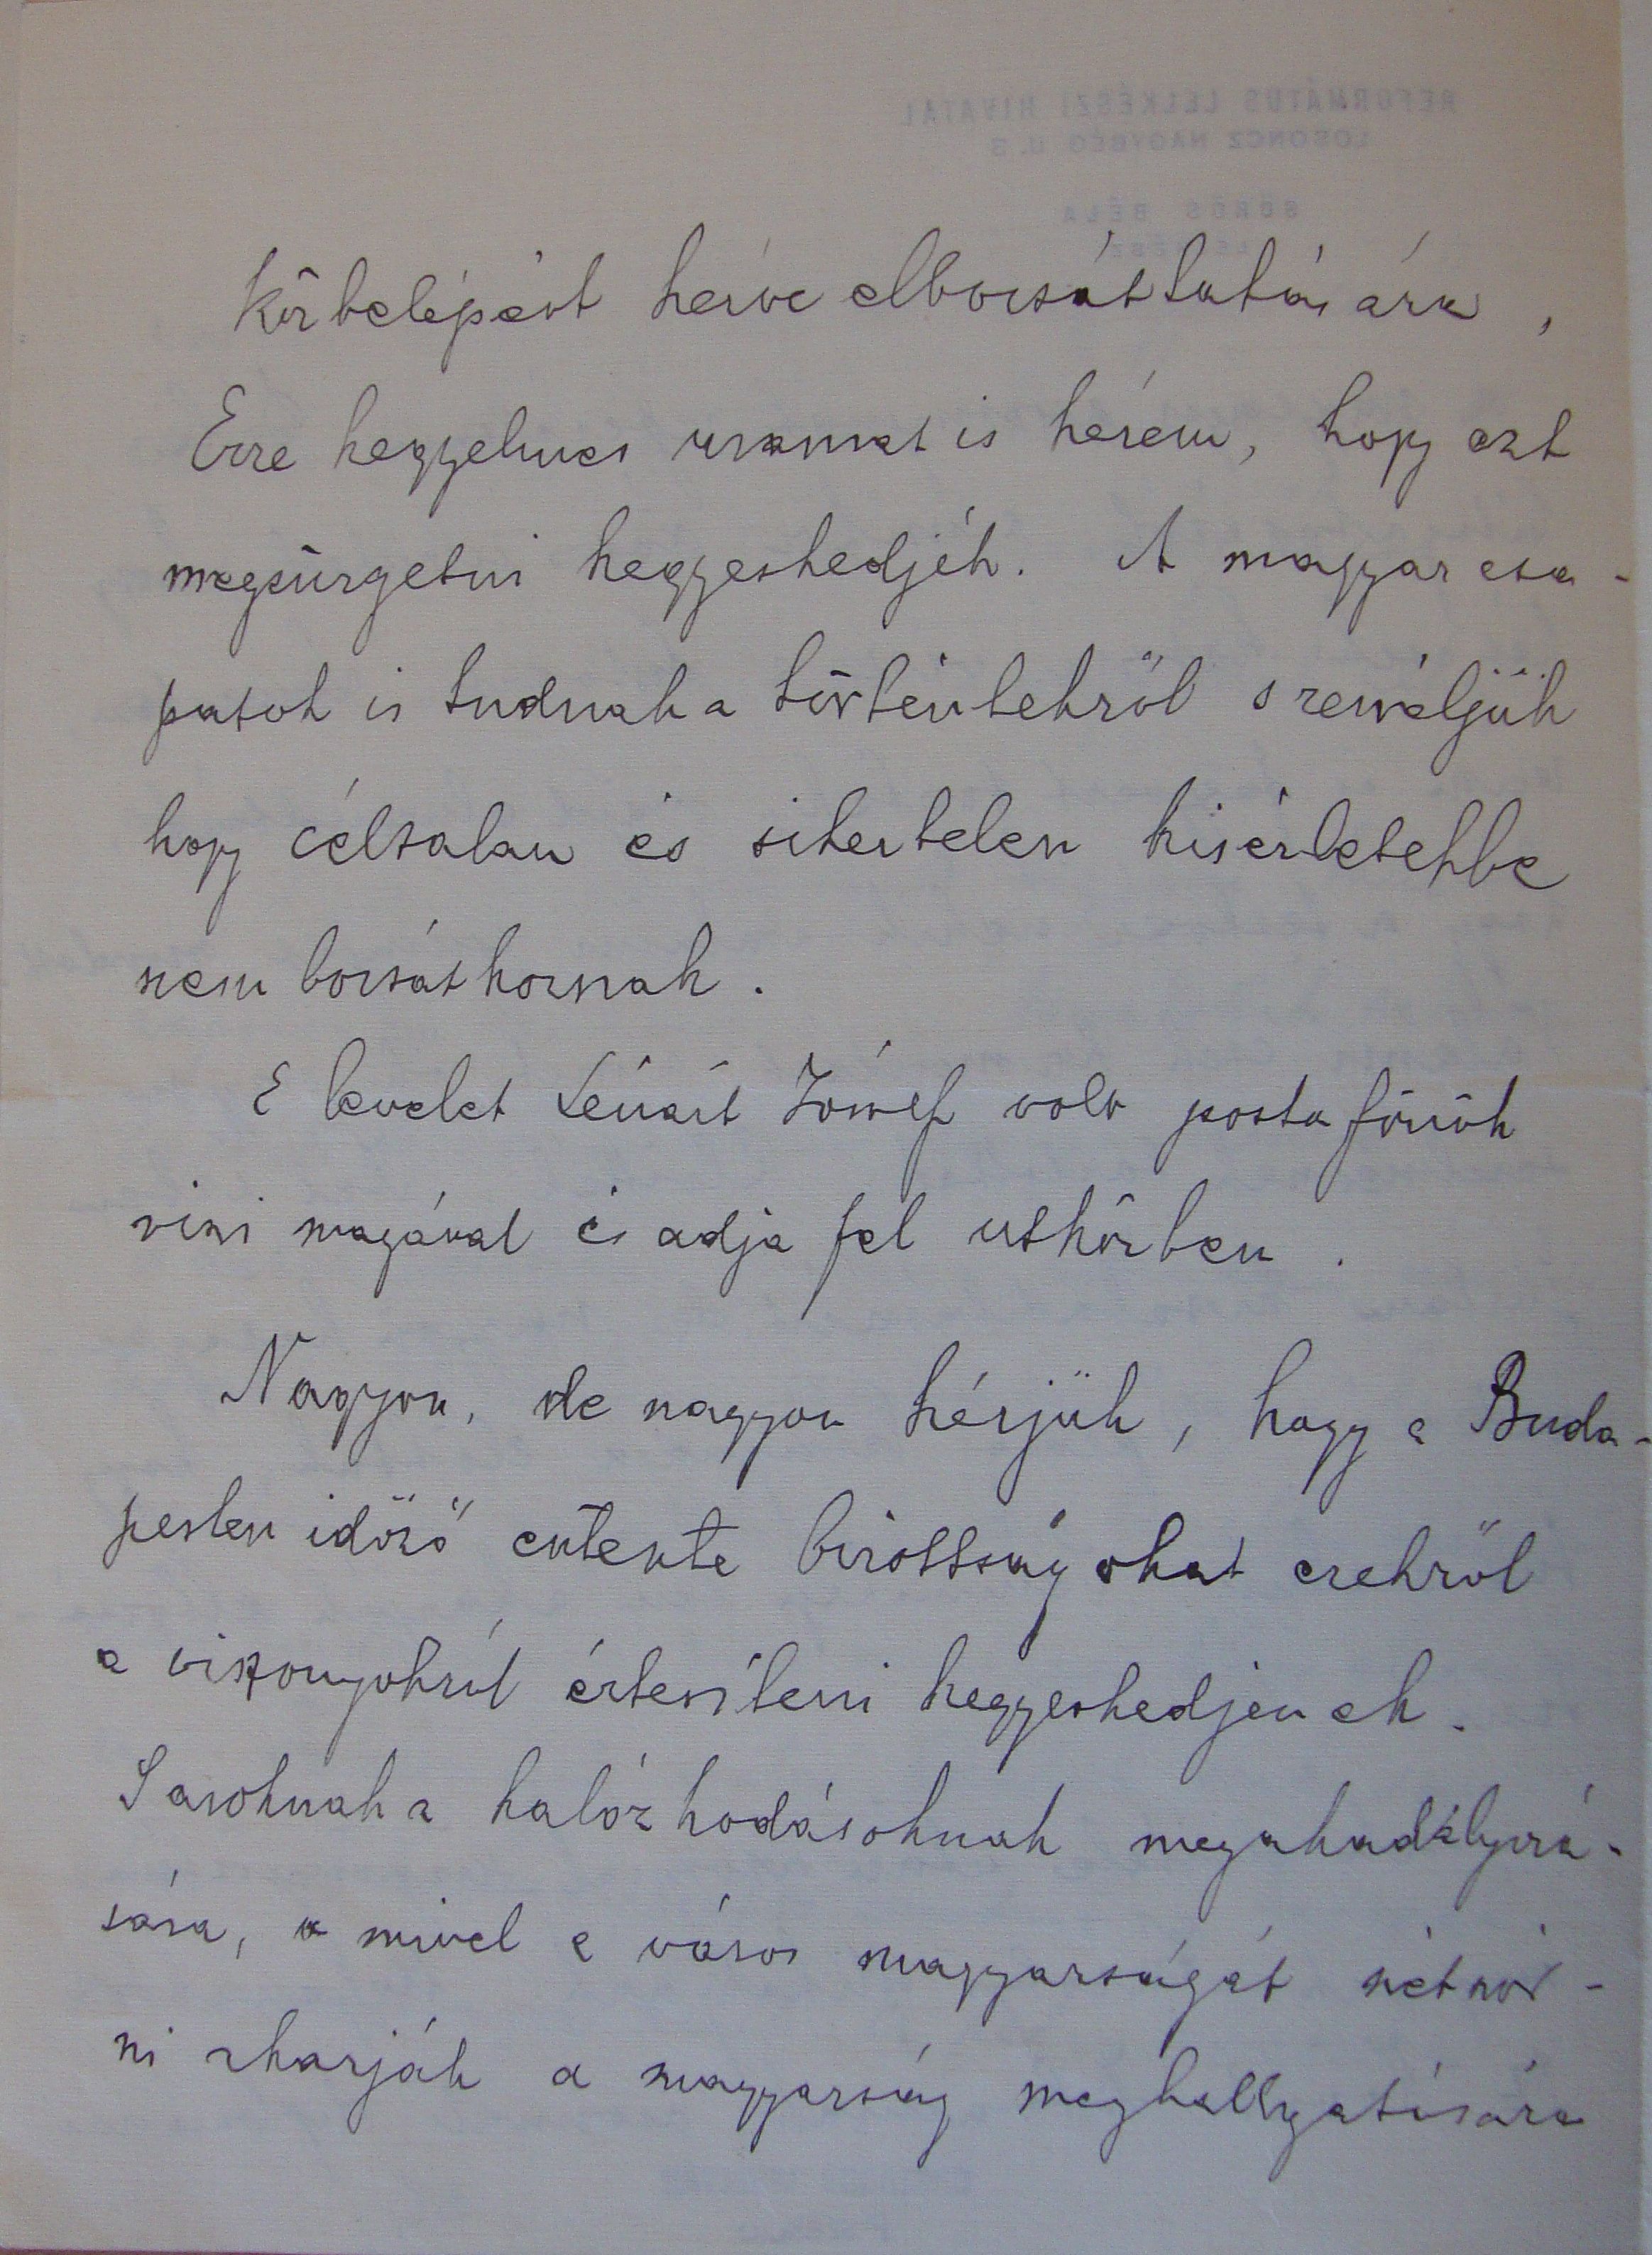 REFORMÁTUS LELKÉSZI HIVATAL
LOSONCZ NAGYBÉG U. 3
SÖRÖS BÉLA
LELKÉSZ
körbelépést kérve elbocsáttatására,
Erre kegyelmes uramat is kérem, hogy ezt
megsürgetni kegyeskedjék. A magyar csa-
patok is tudnak a történtekről s reméljük
hogy céltalan és sikertelen kisérletekbe
nem bocsátkoznak.
E levelet Lénárt József volt posta főnök
viszi magával és adja fel utközben.
Nagyon, de nagyon kérjük, hogy a Buda-
pesten időző entente bizottságokat ezekről
a viszonyokról értesíteni kegyeskedjenek.
Sasoknak a kalózkodásoknak megakadályozá-
sára, a mivel e város magyarságát szétszór-
ni akarják a magyarság meghallgatására